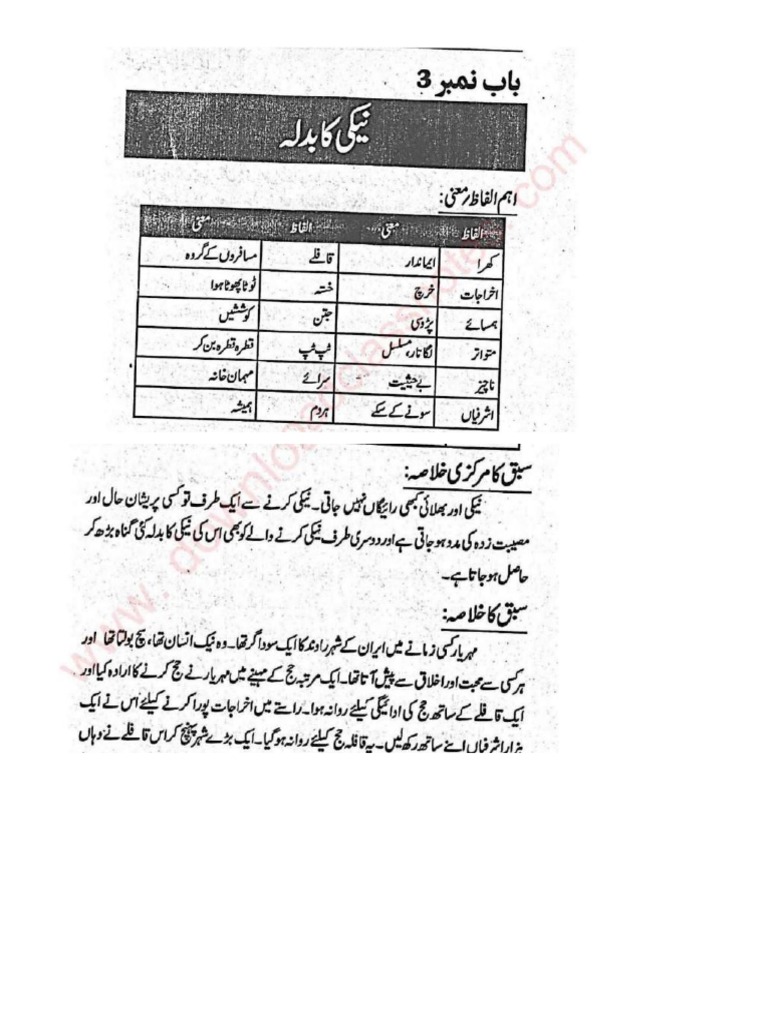 باب نمبر 3
نیکی کا بدلہ
اہم الفاظ/معنی:
الفاظ معنی الفاظ معنی
کھرا ایماندار قافلے مسافروں کے گروہ
اخراجات خرچ خستہ ٹوٹا پھوٹا ہوا
ہمسائے پڑوسی جتن کوششیں
متواتر لگاتار، مسلسل ٹپ ٹپ قطرہ قطرہ بن کر
ناچیز بے حیثیت سرائے مہمان خانہ
اشرفیاں سونے کے سکے ہردم ہمیشہ
سبق کا مرکزی خلاصہ:
نیکی اور بھلائی کبھی رائیگاں نہیں جاتی۔ نیکی کرنے سے ایک طرف تو کسی پریشان حال اور
مصیبت زدہ کی مدد ہو جاتی ہے اور دوسری طرف نیکی کرنے والے کو بھی اس کی نیکی کا بدلہ کئی گناہ بڑھ کر
حاصل ہو جاتا ہے۔
سبق کا خلاصہ:
مہریار کسی زمانے میں ایران کے شہر راوند کا ایک سوداگر تھا۔ وہ نیک انسان تھا، سچ بولتا تھا اور
ہر کسی سے محبت اور اخلاق سے پیش آتا تھا۔ ایک مرتبہ حج کے مہینے میں مہریار نے حج کرنے کا ارادہ کیا اور
ایک قافلے کے ساتھ حج کی ادائیگی کیلئے روانہ ہوا۔ راستے میں اخراجات پورا کرنے کیلئے اس نے ایک
ہزار اشرفیاں اپنے ساتھ رکھ لیں۔ یہ قافلہ حج کیلئے روانہ ہو گیا۔ ایک بڑے شہر پہنچ کر اس قافلے نے وہاں